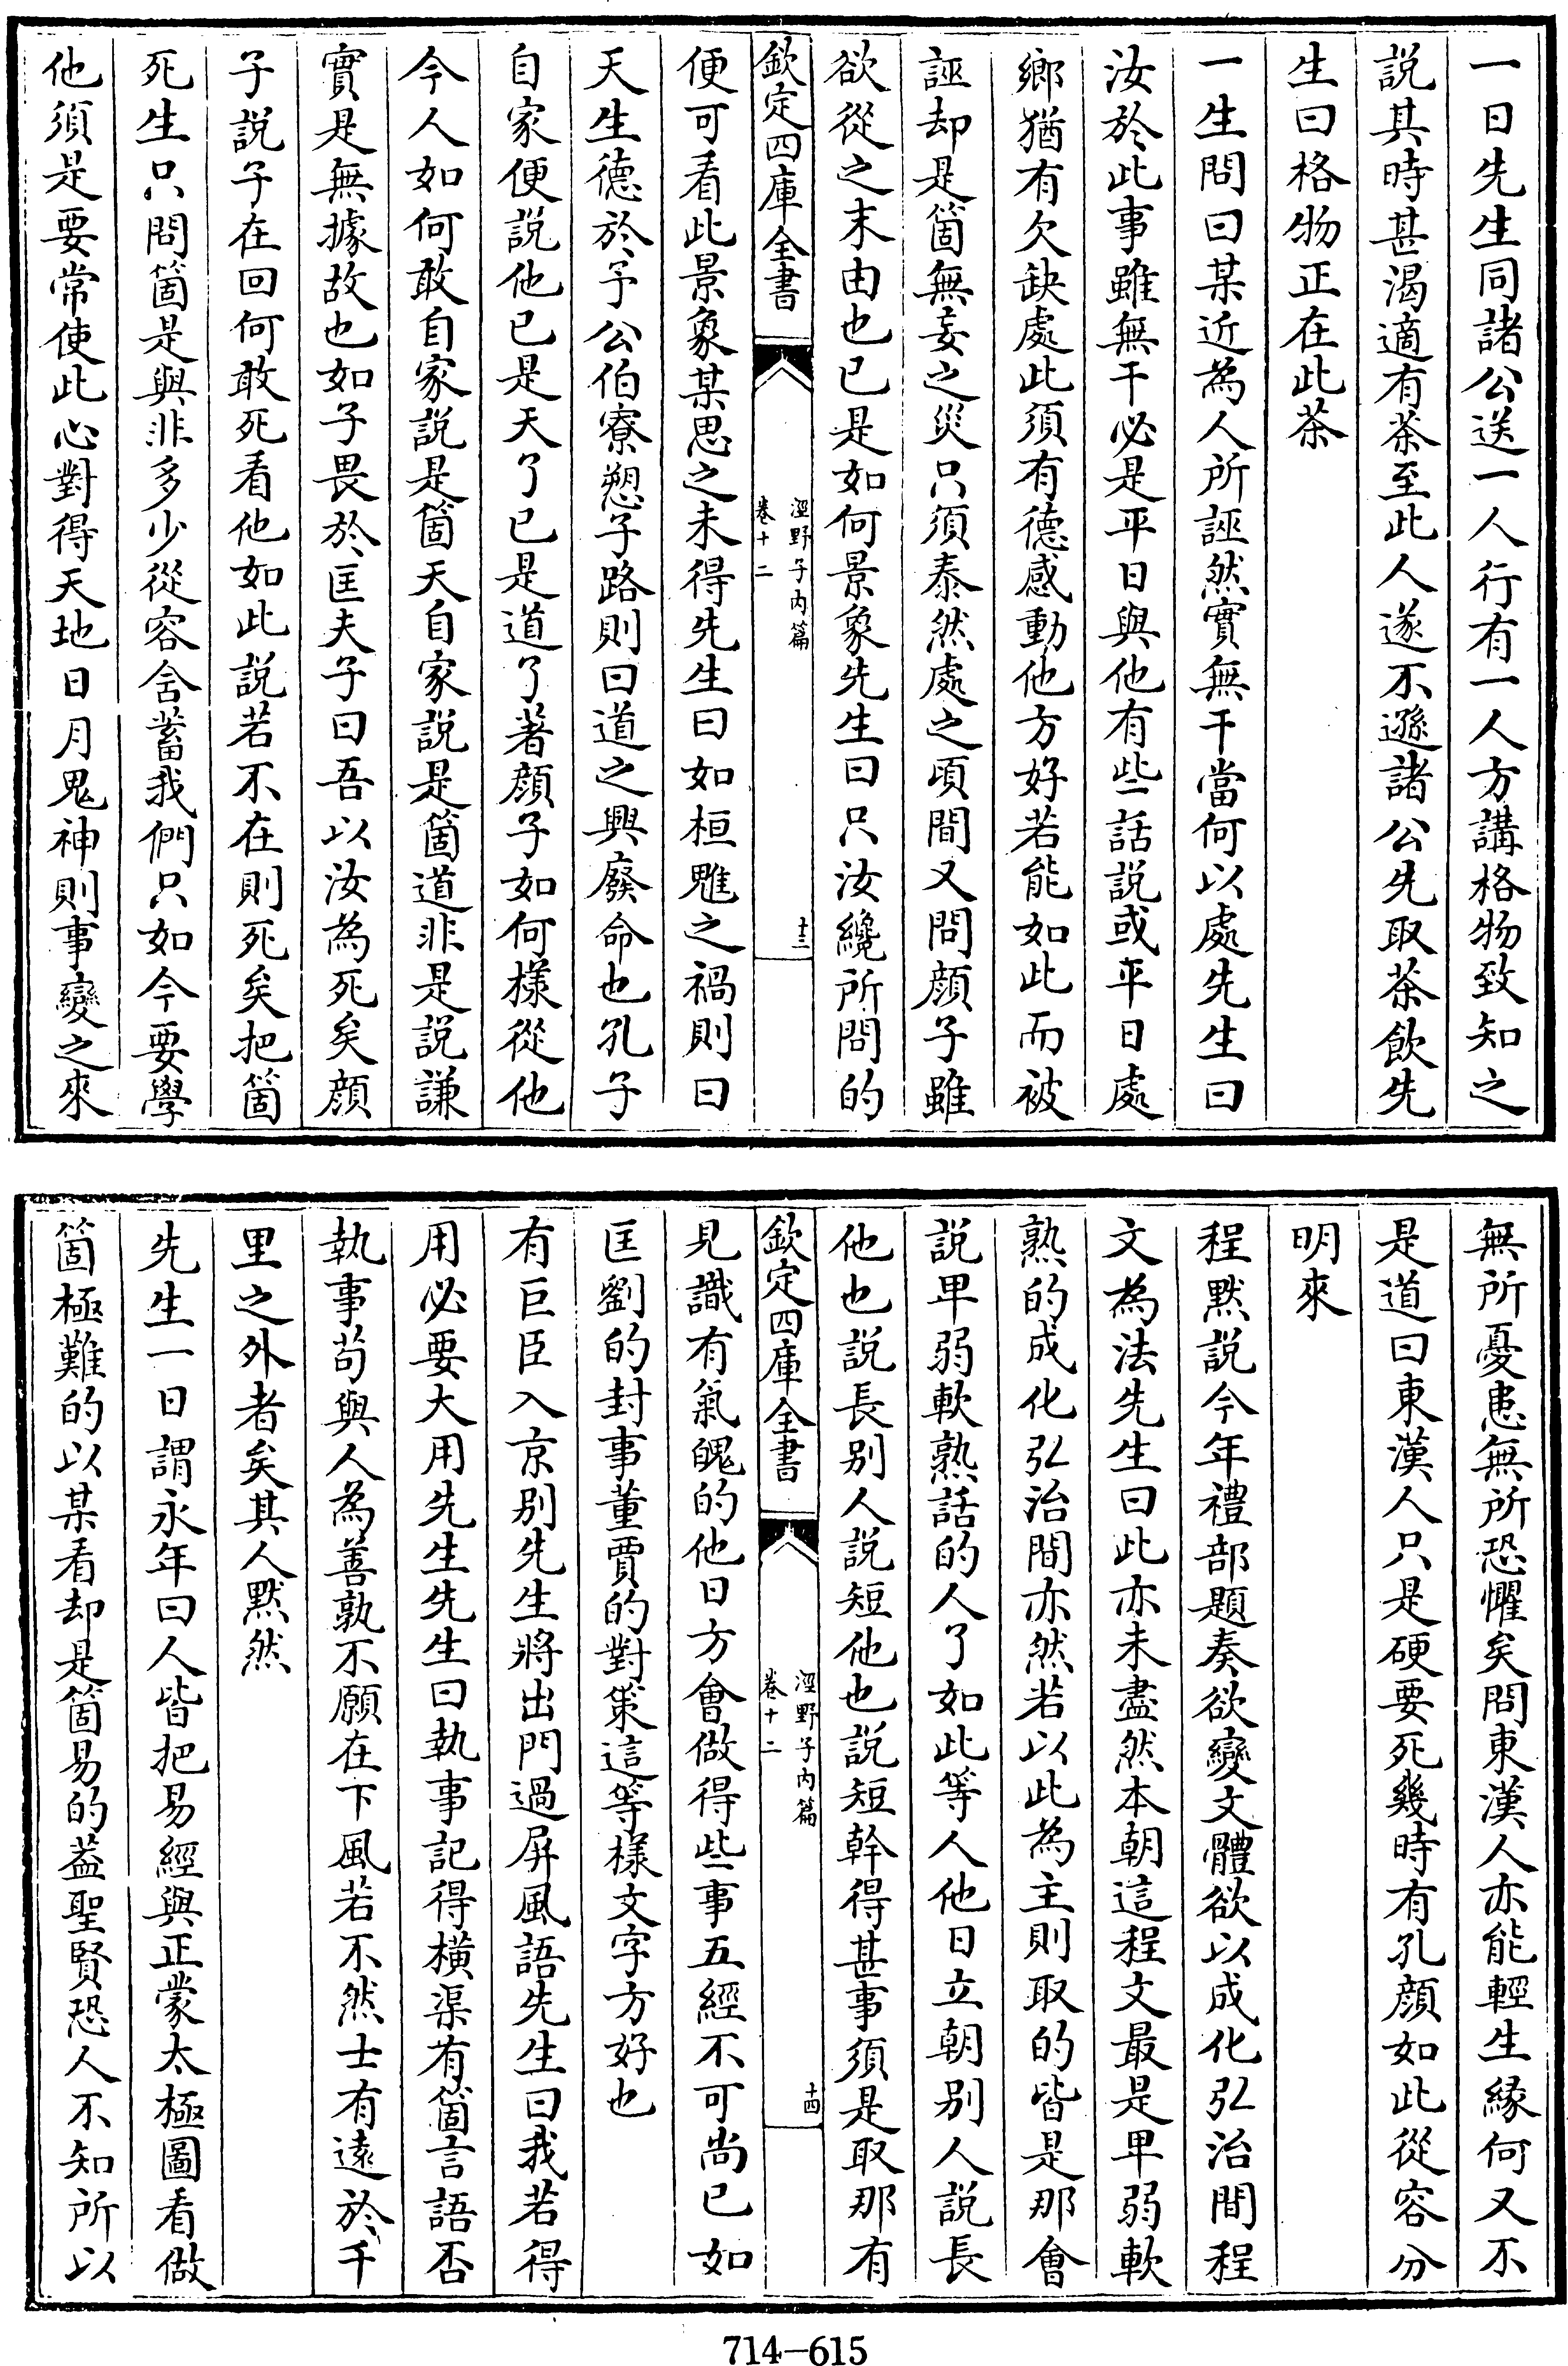 一日先生同諸公送一人行有一人方講格物致知之
説其時甚渴適有茶至此人遂不遜諸公先取茶飲先
生曰格物正在此茶
一生問曰某近為人所誣然實無干當何以處先生曰
汝於此事雖無干必是平日與他有些話説或平日處
鄉猶有欠缺處此須有德感動他方好若能如此而被
誣却是箇無妄之災只須泰然處之頃間又問顔子雖
欲從之末由也已是如何景象先生曰只汝纔所問的
欽定四庫全書
涇野子内篇
卷十二
十三
便可看此景象某思之未得先生曰如桓魋之禍則曰
天生德於予公伯寮愬子路則曰道之興廢命也孔子
自家便説他已是天了已是道了著顔子如何樣從他
今人如何敢自家説是箇天自家説是箇道非是説謙
實是無據故也如子畏於匡夫子曰吾以汝為死矣顔
子説子在回何敢死看他如此説若不在則死矣把箇
死生只問箇是與非多少從容含蓄我們只如今要學
他須是要常使此心對得天地日月鬼神則事變之來
無所憂患無所恐懼矣問東漢人亦能輕生緣何又不
是道曰東漢人只是硬要死幾時有孔顔如此從容分
明來
程黙説今年禮部題奏欲變文體欲以成化弘治間程
文為法先生曰此亦未盡然本朝這程文最是卑弱軟
熟的成化弘治間亦然若以此為主則取的皆是那會
説卑弱軟熟話的人了如此等人他日立朝别人説長
他也説長别人説短他也説短幹得甚事須是取那有
欽定四庫全書
涇野子内篇
卷十二
十四
見識有氣魄的他日方會做得些事五經不可尚已如
匡劉的封事董賈的對策這等樣文字方好也
有巨臣入京别先生將出門過屏風語先生曰我若得
用必要大用先生先生曰執事記得橫渠有箇言語否
執事苟與人為善孰不願在下風若不然士有遠於千
里之外者矣其人黙然
先生一日謂永年曰人皆把易經與正蒙太極圖看做
箇極難的以某看却是箇易的葢聖賢恐人不知所以
714—615